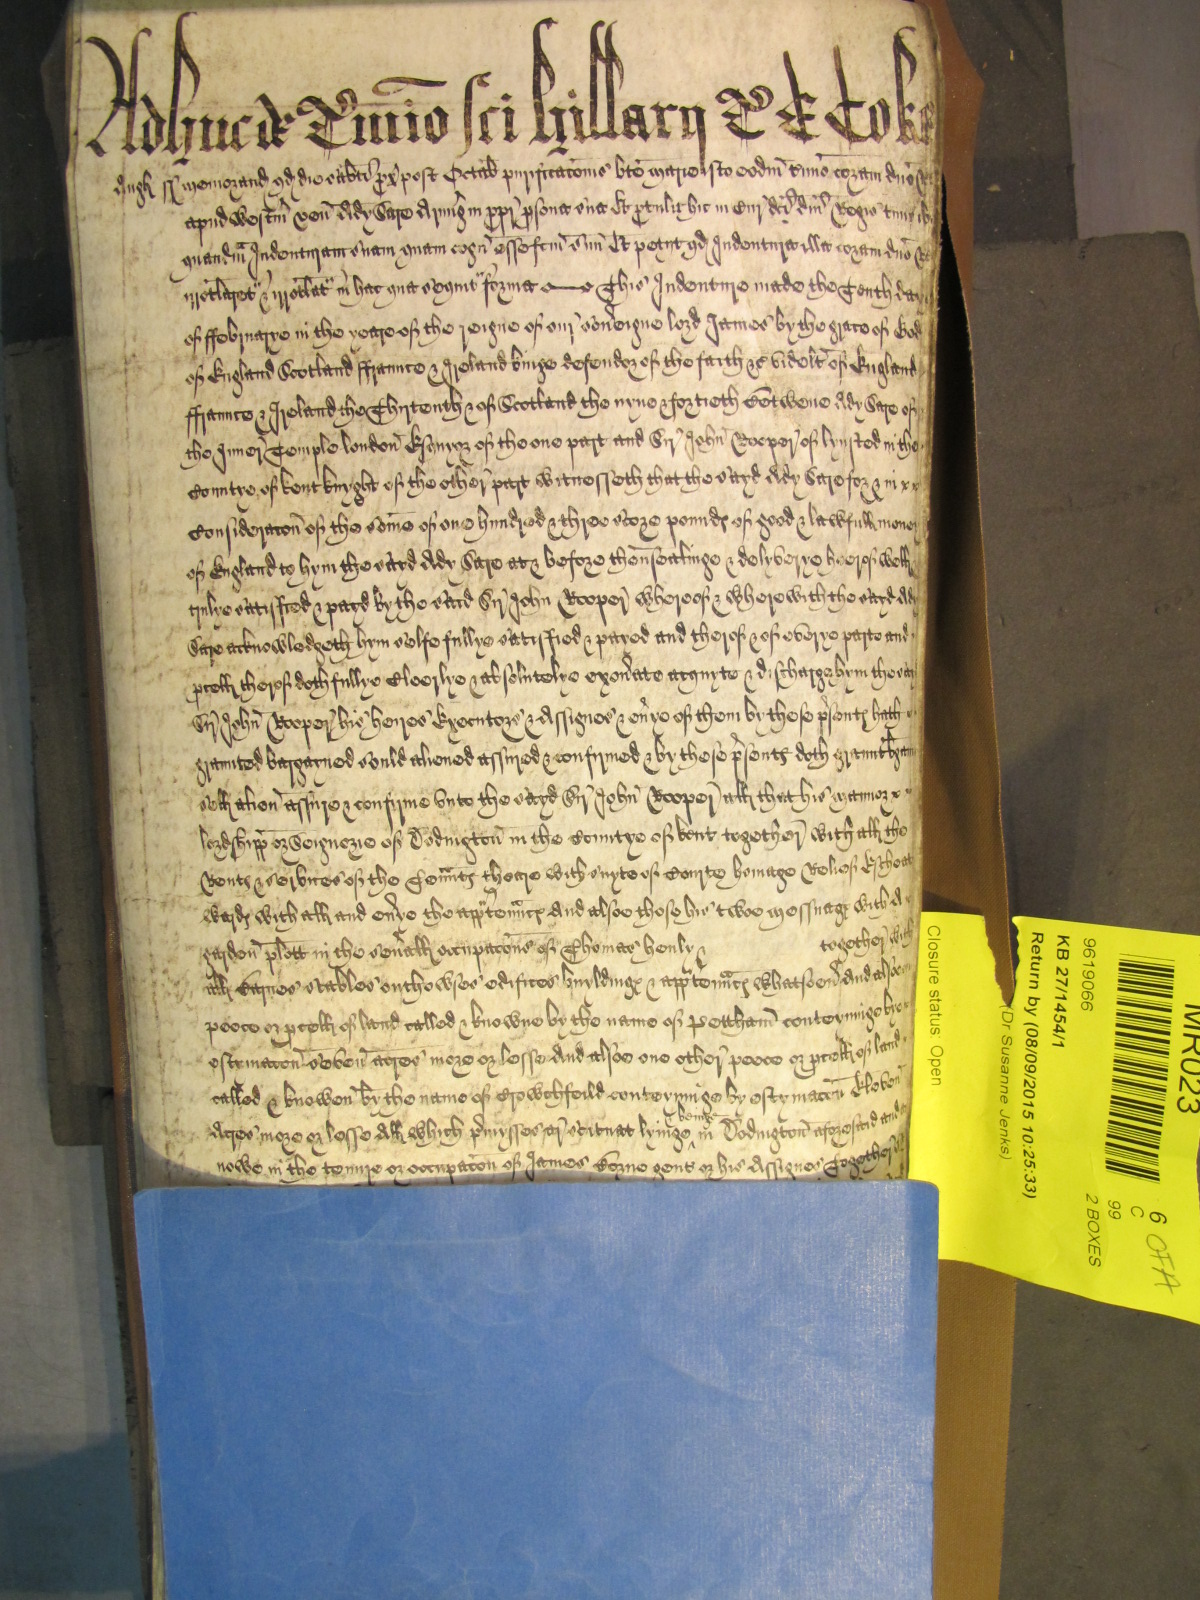 Adhuc de Tmio sci hillarij T E Coke
Angli ss memorand qd die sabti px post Octab purificacois bte marie isto eodm tmio coram dno
apud Westm ven Ady Sare Armig in ppr psona sua Et ptulit hic in Cur dci dni Regis tunc ib
quandm Indenturam suam quam cogn esse fcm suu Et petit qd Indentura illa coram dno
irrotlaret & irrotlat in hac qua sequit forma This Indenture made the Tenth day
of ffebruarye in the yeare of the reigne of our sovreigne lord James by the grace of God
of England Scotland ffraunce & Ireland kinge defendor of the faith &c videlt of England
ffraunce & Ireland the Thirtenth & of Scotland the nyne & fortieth Betwene Ady Sare of
the Inner Temple london Esquyor of the one part and Sr John Rooper of lynsted in the
Countye of kent knyght of the other part witnesseth that the sayd Ady Sare for & in
Consideracon of the some of one hundred & three score pounds of good & lawfull money
of England to hym the sayd Ady Sare at & before thensealinge & delyverye heerof well
trulye satisfied & payd by the said Sr John Rooper whereof & wherewith the sayd Ady
Sare acknowledgeth hym selfe fullye satisfied & payed and therof & of everye parte and
pcell therof doth fullye Cleerlye & absolutelye exonate acquyte & discharge hym the said
Sr John Rooper his heires Executors & Assignes & evye of them by these psents hath
graunted bargayned sould aliened assured & confirmed & by these psents doth graunt bgain
sell alien assure & confirme unto the sayd Sr John Rooper all that his mannor
lordshipp or Seignorie of Dodington in the Countye of kent together with all the
Rents & services of the Tennts theare with suyte of Courte homage Relief Escheat
wards with all and evye the apptennces And alsoe those his twoe messuags with
garden plott in the sevall occupacons of Thomas henly & together with
all barnes stables outhowses edifices buyldings & apptennces whatsoev And alsoe
peece or pcell of land called & knowne by the name of Pettham conteyninge bye
estymacon seven acres more or lesse And alsoe one other peece or pcell of land
called & knowen by the name of Crowchfeild conteyninge by estymacon Eleven
Acres more or lesse All which pmysses ar scituat lyinge & beinge in Dodington aforesaid and
nowe in the tenure or occupacon of James Borne gent or his Assignes Together
Closure status: Open
(Dr Susanne Jenks)
Return by (08/09/2015 10:25:33)
KB 27/1454/1
9619066
MR023
2 BOXES
99
C
6 OFA